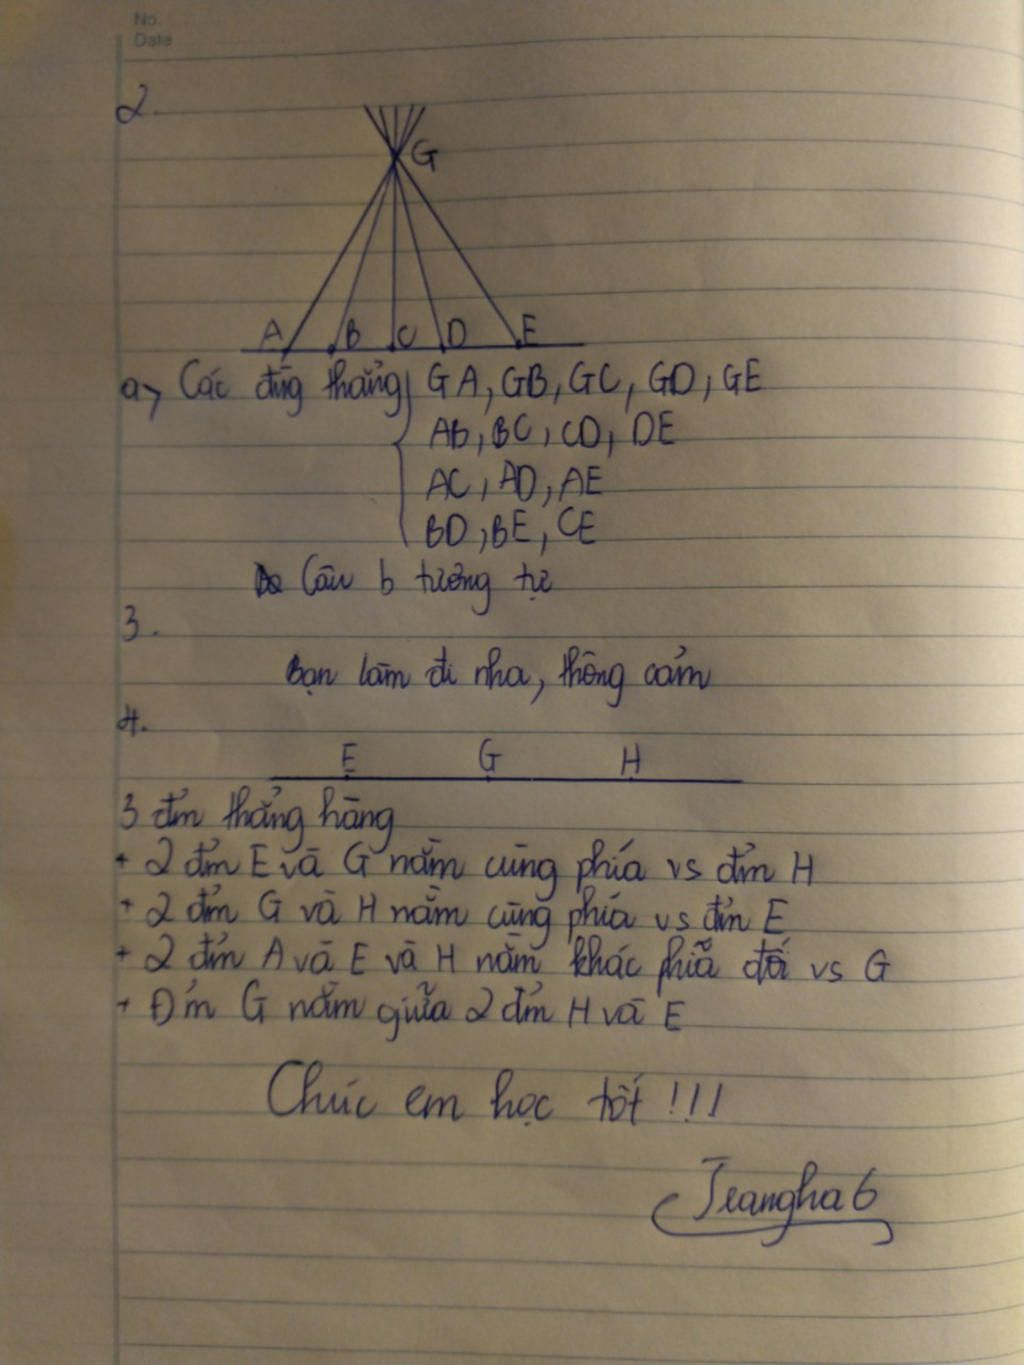 No.
Date
2.
G
A B C D E
a, Các đừg thẳng GA, GB, GC, GD, GE
AB, BC, CD, DE
AC, AD, AE
BD, BE, CE
Câu b tương tự
3.
Bạn làm đi nha, thông cảm
4.
E G H
3 đ'm thẳng hàng
+ 2 đ'm E và G nằm cùng phía vs đ'm H
+ 2 đ'm G và H nằm cùng phía vs đ'm E
+ 2 đ'm A và E và H nằm khác phía đối vs G
+ Đ'm G nằm giữa 2 đ'm H và E
Chúc em học tốt !!!
Trangha6